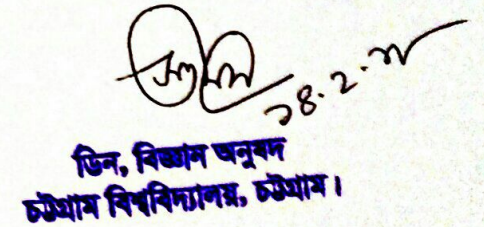 ডিন, বিজ্ঞান অনুষদ
চট্টগ্রাম বিশ্ববিদ্যালয়, চট্টগ্রাম।